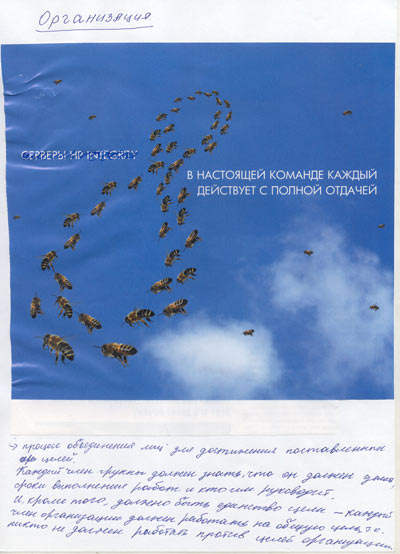 Организация
СЕРВЕРЫ HP INTEGRITY
В НАСТОЯЩЕЙ КОМАНДЕ КАЖДЫЙ
ДЕЙСТВУЕТ С ПОЛНОЙ ОТДАЧЕЙ
→ процесс объединения лиц для достижения поставленных
целей.
Каждый член группы должен знать, что он должен делать,
сроки выполнения работ и кто им руководит.
И, кроме того, должно быть единство цели – каждый
член организации должен работать на общую цель, т.е.
никто не должен работать против целей организации.